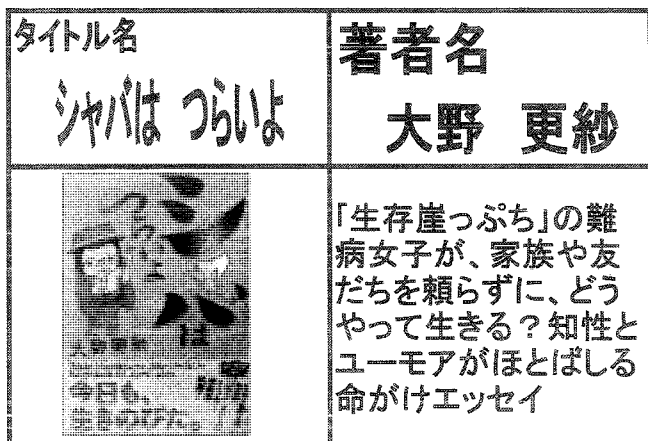 タイトル名
シャバは つらいよ
著者名
大野 更紗
は
大野更紗
今日も、
生きのびた。
「生存崖っぷち」の難
病女子が、家族や友
だちを頼らずに、どう
やって生きる？知性と
ユーモアがほとばしる
命がけエッセイ